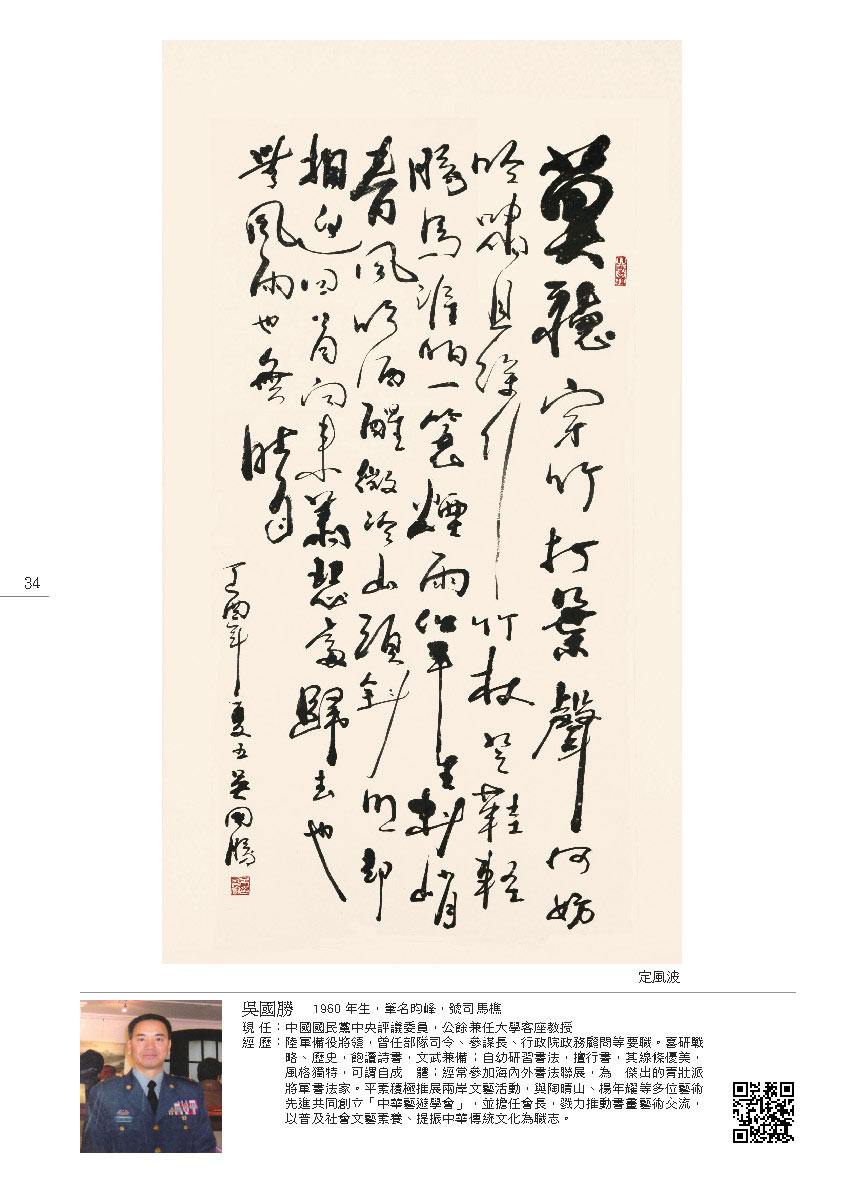 莫聽穿林打葉聲何妨
吟嘯且徐行竹杖芒鞋輕
勝馬誰怕一蓑煙雨任平生料峭
春風吹酒醒微冷山頭斜照却
相迎回首向來蕭瑟處歸去也
無風雨也無晴
丁酉年夏五吳國勝
34
定風波
吳國勝 1960 年生，筆名昀峰，號司馬樵
現 任：中國國民黨中央評議委員，公餘兼任大學客座教授
經 歷：陸軍備役將領，曾任部隊司令、參謀長、行政院政務顧問等要職。喜研戰
略、歷史，飽讀詩書，文武兼備；自幼研習書法，擅行書，其線條優美，
風格獨特，可謂自成 體；經常參加海內外書法聯展，為 傑出的青壯派
將軍書法家。平素積極推展兩岸文藝活動，與陶晴山、楊年耀等多位藝術
先進共同創立「中華藝遊學會」，並擔任會長，戮力推動書畫藝術交流，
以普及社會文藝素養、提振中華傳統文化為職志。